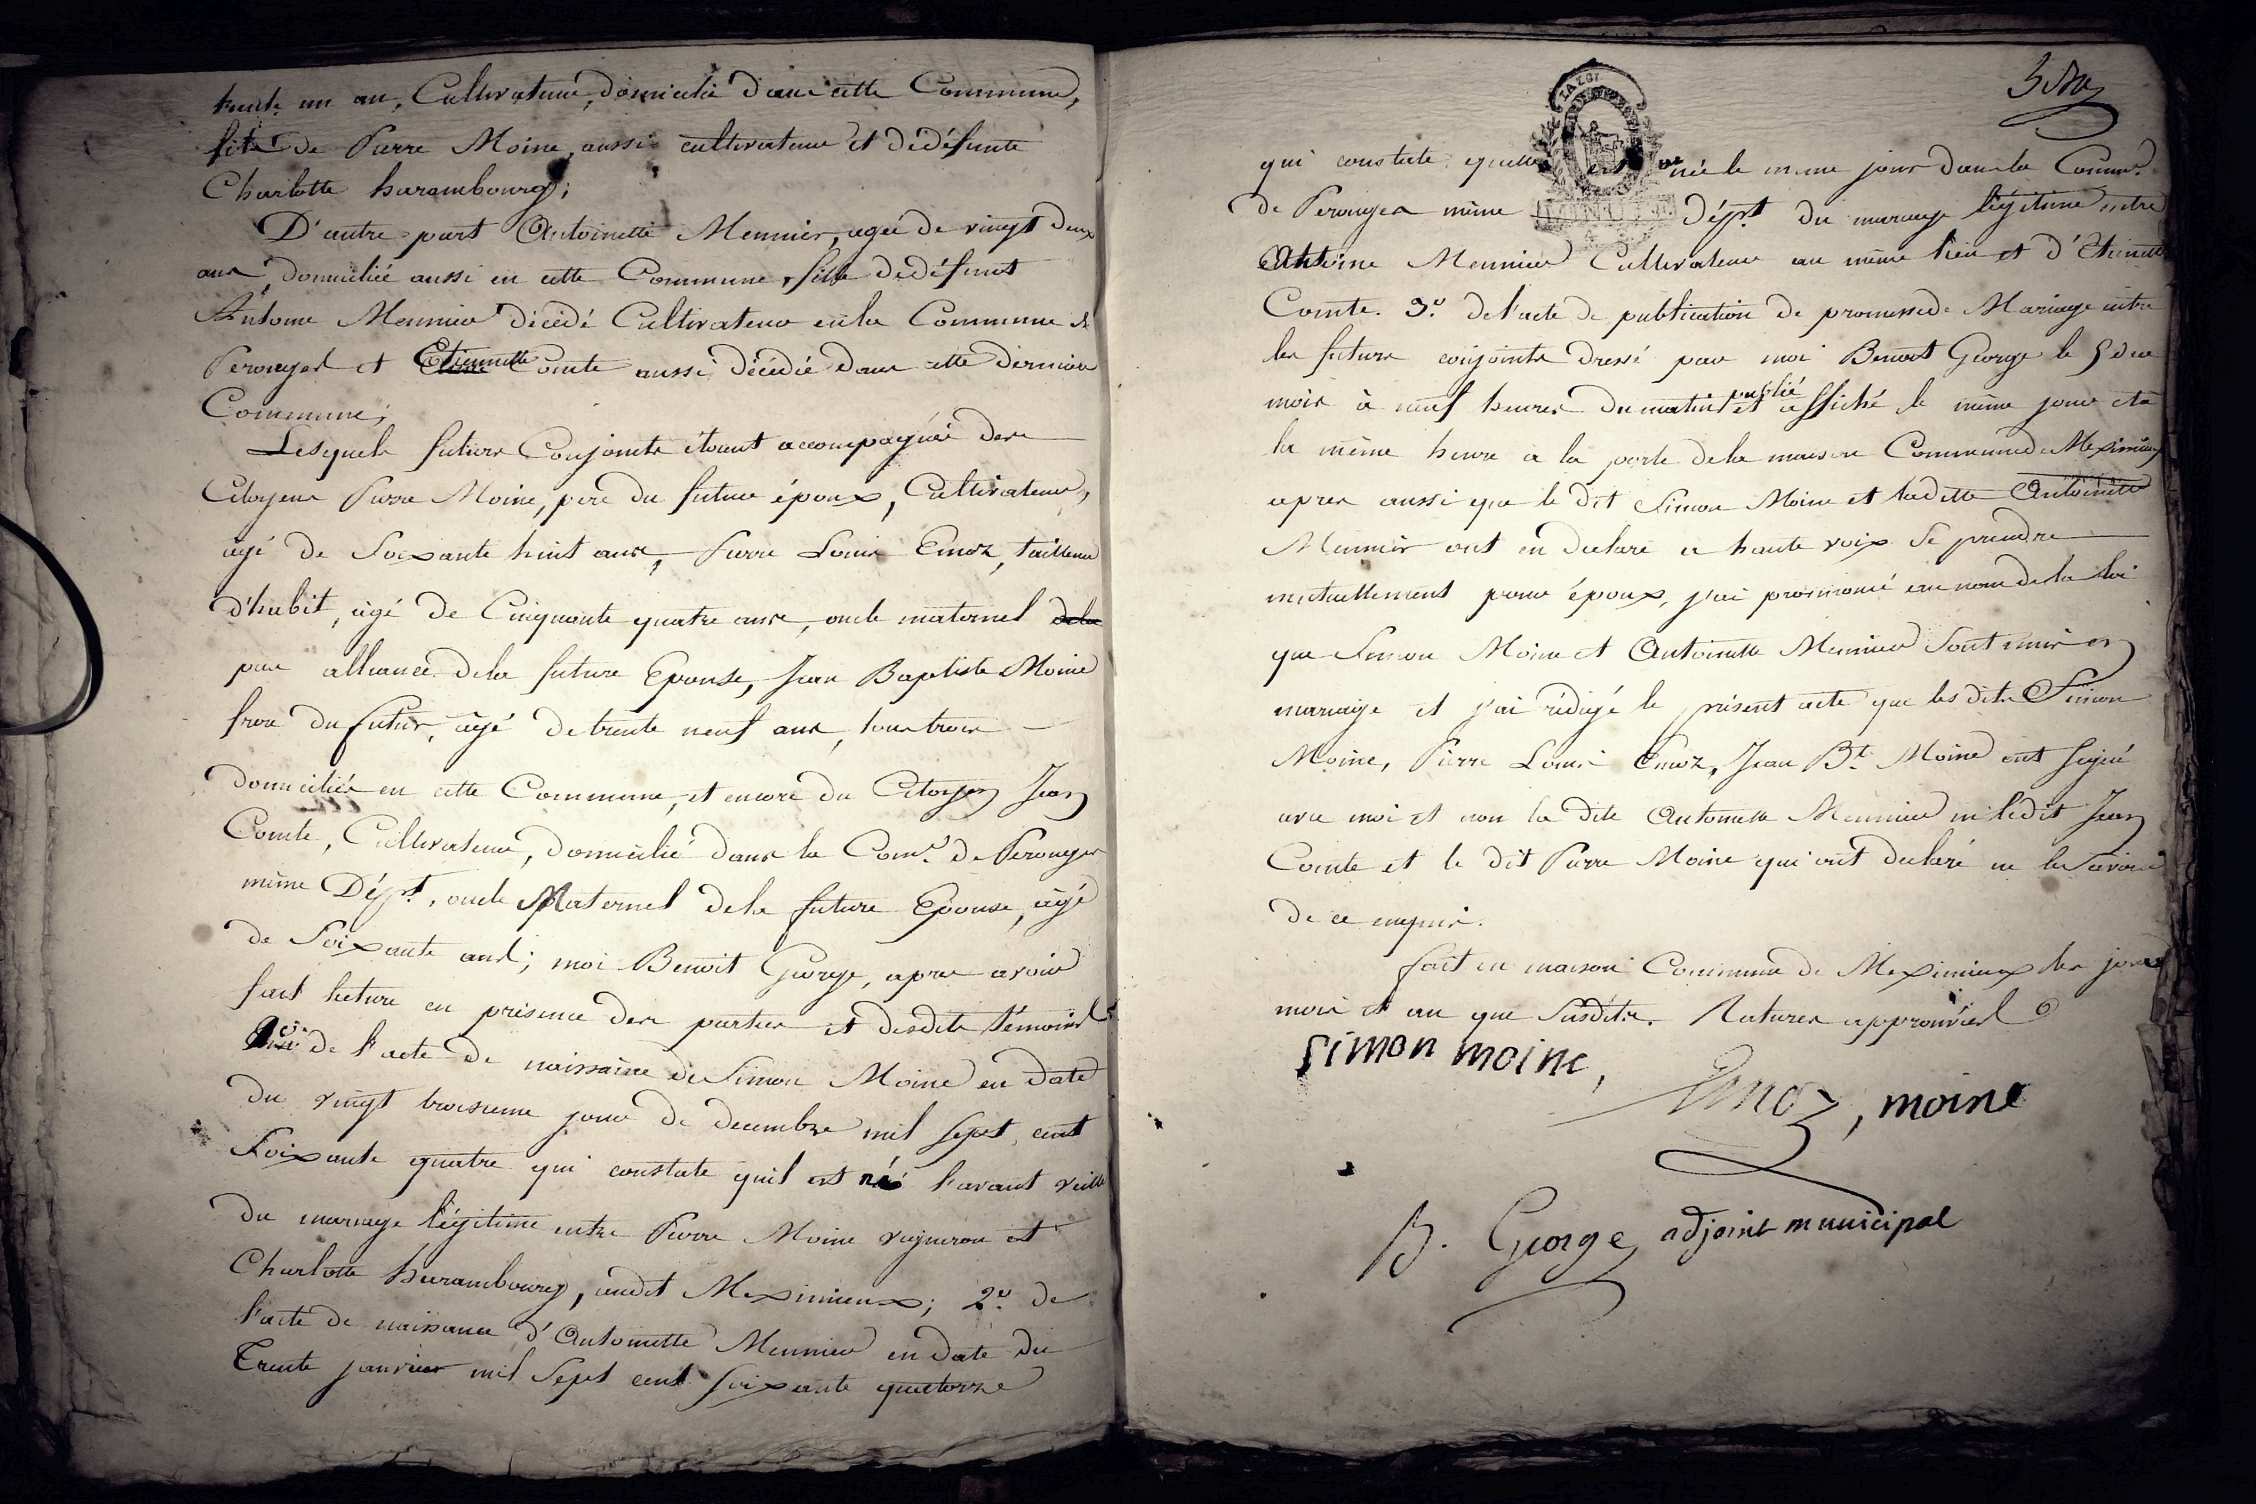 trente un an, Cultivateur, domicilié dans cette Commune,
fils de Pierre Moine, aussi cultivateur et dedéfunte
Charlotte harambourg;
D'autre part Antoinette Meunier, agée de vingt deux
ans, domiciliée aussi en cette Commune, fille dedéfunt
Antoine Meunier décédé Cultivateur enla Commune de
Perouges et Etiennette Comte aussi décédée dans cette dernière
Commune;
Lesquels futurs Conjoints étant accompagnés des
Citoyens Pierre Moine, père du futur époux, Cultivateur,
agé de Soixante huit ans, Pierre Louis Emoz, tailleur
d'habit, agé de Cinquante quatre ans, oncle maternel dela
par alliance dela future Epouse, Jean Baptiste Moine
frere du futur, agé detrente neuf ans, tous trois
domiciliés en cette Commune, et encore du Citoyen Jean
Comte, Cultivateur, domicilié dans la Comne. de Perouges
même Dépt., oncle Maternel dela future Epouse, agé
de Soixante ans; moi Benoit George, apres avoir
fait lecture en présence des parties et desdits témoins
1° de l'acte de naissance de Simon Moine en date
du vingt troisieme jour de decembre mil sept cent
Soixante quatre qui constate quil est né l'avant veille
du mariage légitime entre Pierre Moine vigneron et
Charlotte harambourg, audit Meximieux; 2° de
l'acte de naissance d'Antoinette Meunier en date du
Trente janvier mil Sept cent soixante quatorze
qui constate quelle est née le meme jour dans la Comne.
de Perouges même Dépt. du mariage légitime entre
Antoine Meunier Cultivateur au même lieu et d'Etiennette
Comte. 3° del'acte de publication de promesse de Mariage entre
les futurs conjoints dressé par moi Benoit George le 5 du
mois à neuf heures du matin publié et affiché le même jour et à
la même heure a la porte dela maison Commune de Meximieux
apres aussi que le dit Simon Moine et ladite Antoinette
Meunier ont eu declaré a haute voix Se prendre
mutuellement pour époux, j'ai prononcé au nom de la loi
que Simon Moine et Antoinette Meunier Sont unis en
mariage et j'ai rédigé le présent acte que les dits Simon
Moine, Pierre Louis Emoz, Jean Bt. Moine ont signé
avec moi et non la dite Antoinette Meunier ni ledit Jean
Comte et le dit Pierre Moine qui ont declaré ne le Savoir
de ce enquis.
fait en maison Commune de Meximieux les jour
mois et an que Susdits. Ratures approuvées
Simon moine,
Emoz, moine
B. George, adjoint municipal